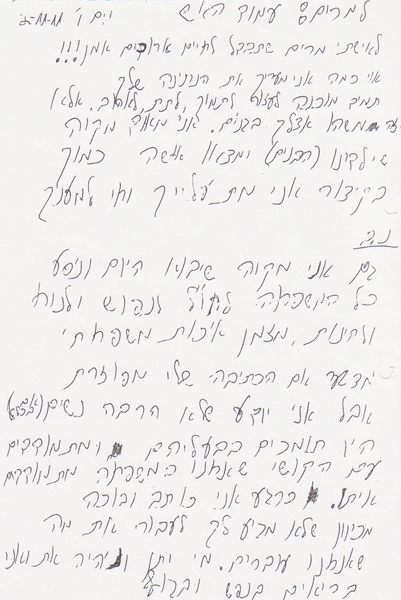 למרים עמוד האש
לאישתי מרים שתבדל לחיים ארוכים אמן!!!
אוי כמה אני מעריך את הנתינה שלך
תמיד מוכנה לעזור לתמוך, לתת, לאהוב. אלא
זה משהו אצלך בגנים. אני מאוד מקוה
שילדינו (הבנים) ימצאו אישה כמוך
בקיצור אני מת עלייך וחי למענך
נ.ב.
גם אני מקוה שיבוא היום וניסע
כל המשפחה לחו"ל לנפוש ולנוח
ולהינות מזמן איכות משפחתי
יודע אם הכתיבה שלי מפוזרת
אבל אני יודע שלא הרבה נשים
היו תומכים בבעליהם ומתמודדים
עם הקושי שאנחנו כמשפחה מתמודדים
איתו. כרגע אני כותב ובוכה
מכיוון שלא מגיע לך לעבור את מה
שאנחנו עוברים. מי יתן ונהיה את ואני
בריאים בנפש ובגוף